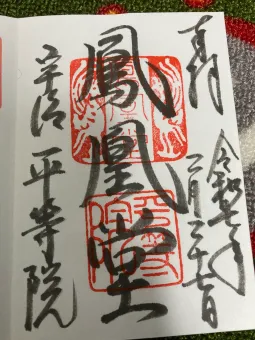 奉拝
令和七年
二月二十七日
鳳凰堂
宇治 平等院